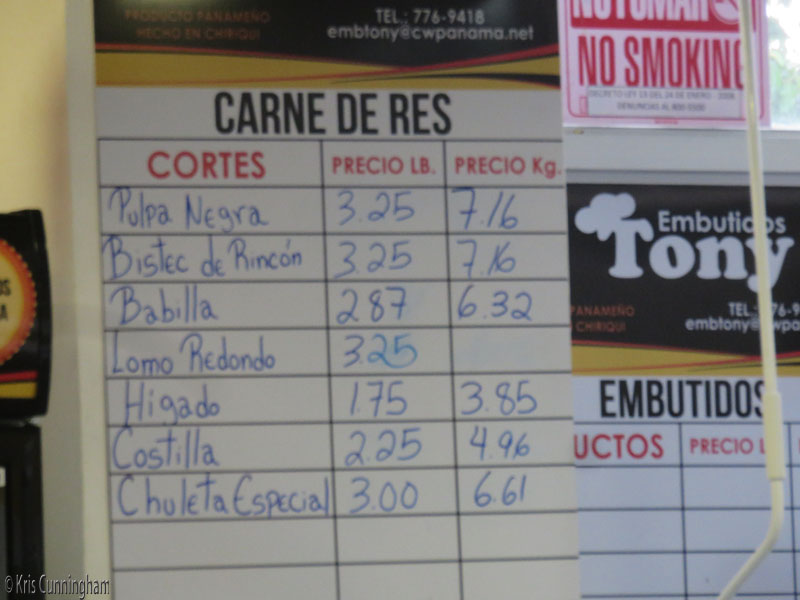 PRODUCTO PANAMEÑO
HECHO EN CHIRIQUI
TEL.: 776-9418
embtony@cwpanama.net
CARNE DE RES
CORTES PRECIO LB. PRECIO Kg.
Pulpa Negra 3.25 7.16
Bistec de Rincón 3.25 7.16
Babilla 2.87 6.32
Lomo Redondo 3.25
Higado 1.75 3.85
Costilla 2.25 4.96
Chuleta Especial 3.00 6.61
NO SMOKING
DECRETO LEY 13 DEL 24 DE ENERO 2008
DENUNCIAS AL 800-0500
Embutidos
Tony
PANAMEÑO
CHIRIQUI
TEL
embtony@
EMBUTIDOS
UCTOS PRECIO L
© Kris Cunningham